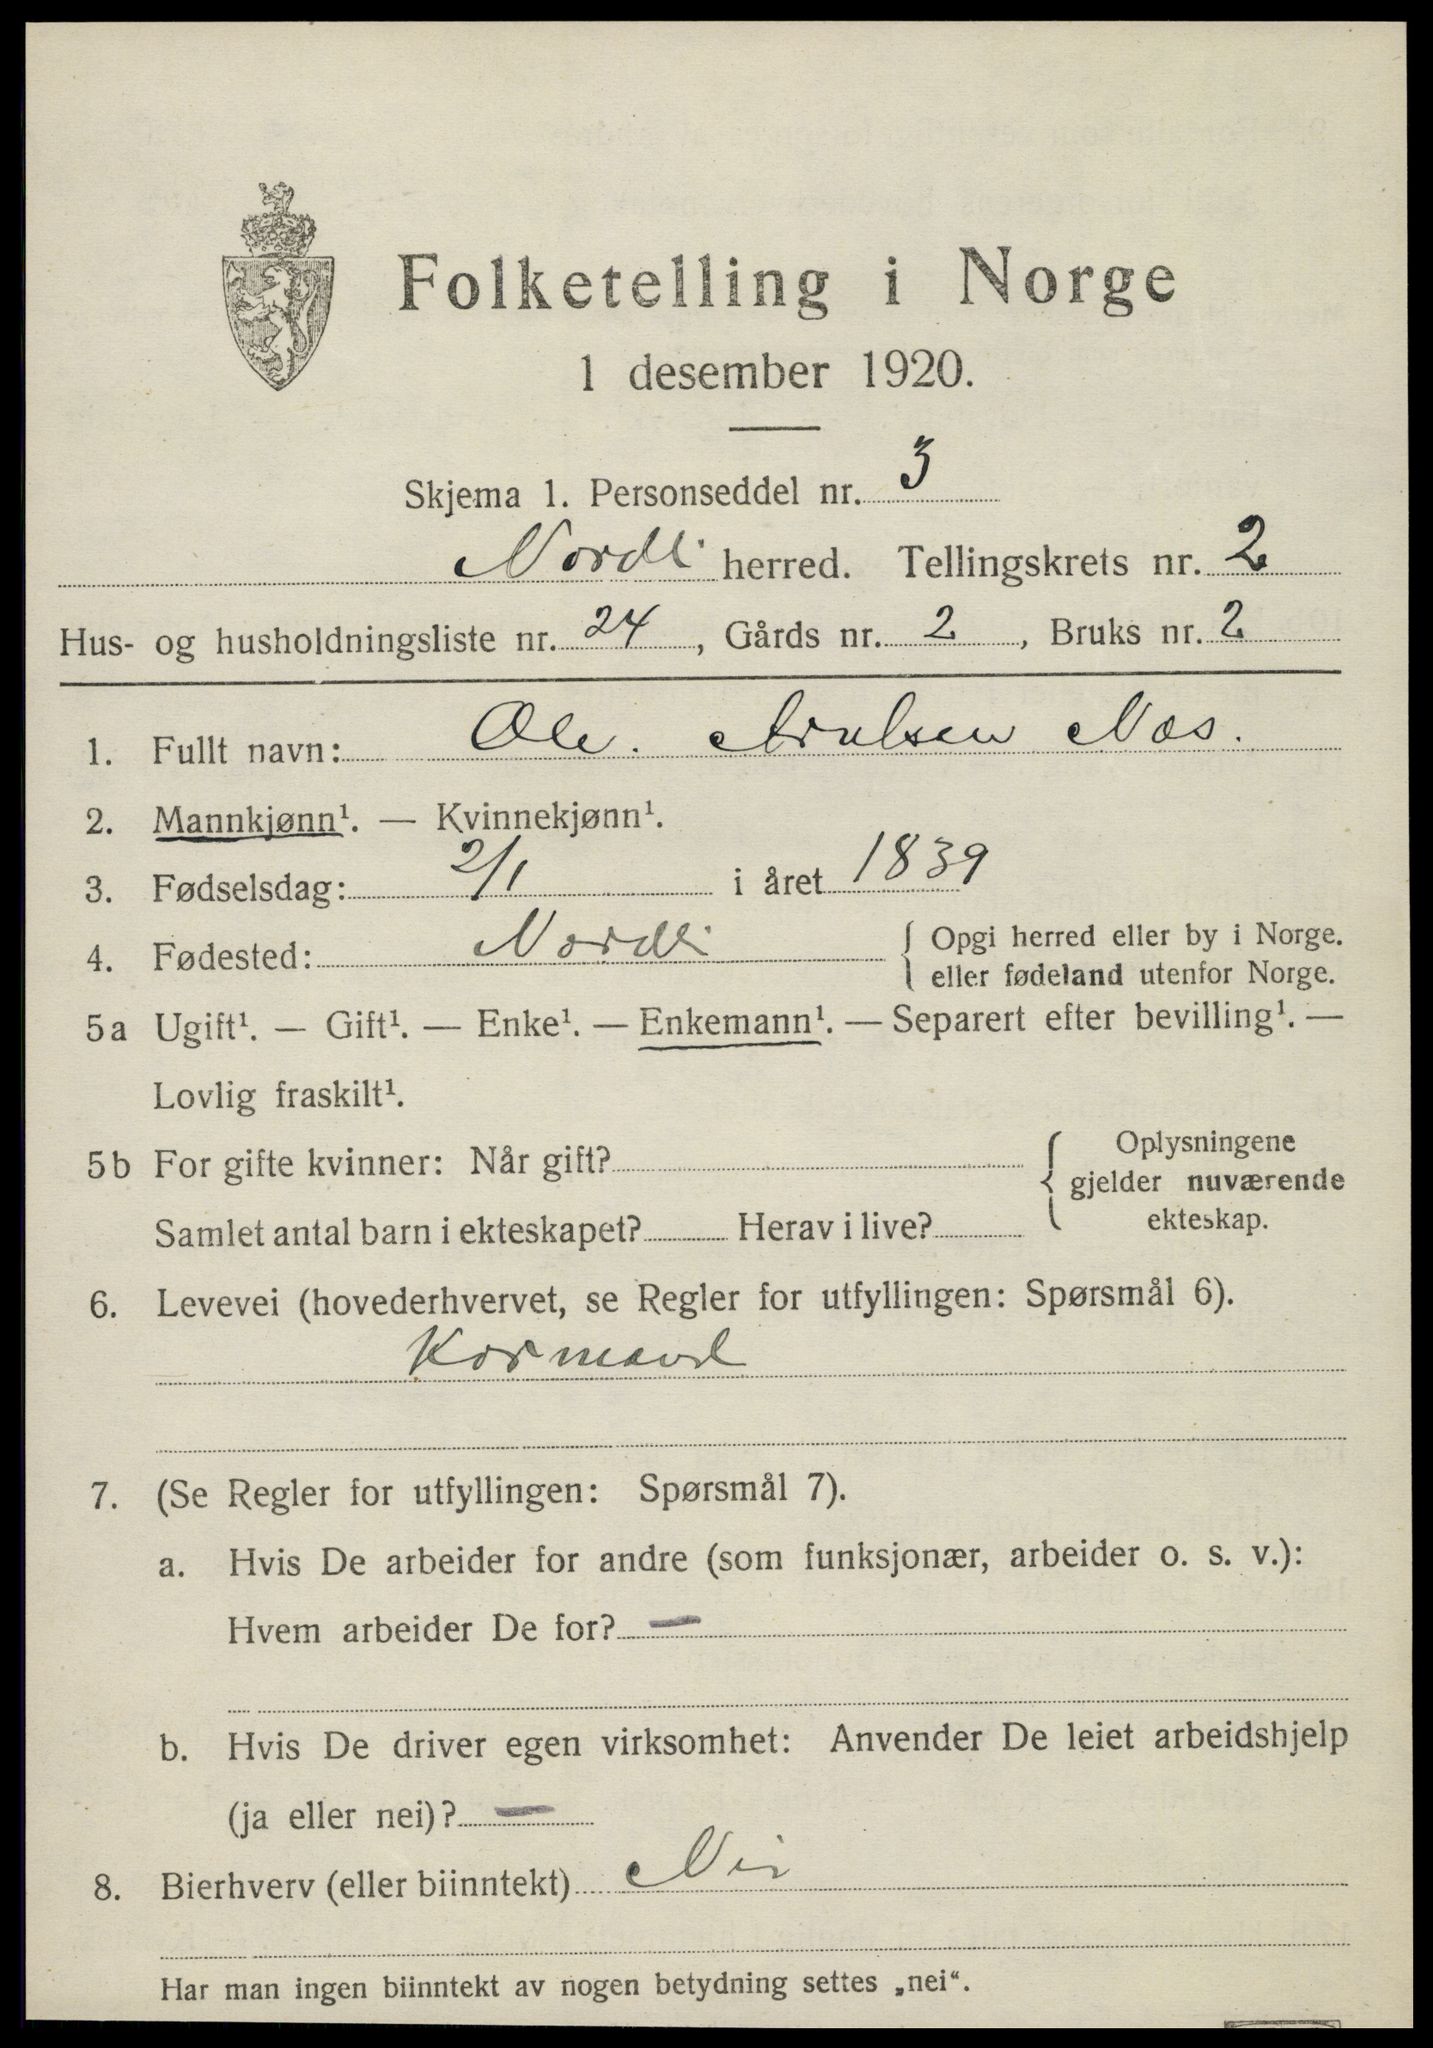 Folketelling i Norge
1 desember 1920.
Skjema 1. Personseddel nr. 3
Nordli herred. Tellingskrets nr. 2
Hus- og husholdningsliste nr. 24, Gårds nr. 2, Bruks nr. 2
1. Fullt navn: Ole. Arntsen Næs.
2. Mannkjønn¹. — Kvinnekjønn¹.
3. Fødselsdag: 2/1 i året 1839
4. Fødested: Nordli { Opgi herred eller by i Norge.
eller fødeland utenfor Norge.
5a Ugift¹. — Gift¹. — Enke¹. — Enkemann¹. — Separert efter bevilling¹. —
Lovlig fraskilt¹.
5b For gifte kvinner: Når gift? { Oplysningene
gjelder nuværende
Samlet antal barn i ekteskapet? Herav i live? ekteskap.
6. Levevei (hovederhvervet, se Regler for utfyllingen: Spørsmål 6).
Kormand
7. (Se Regler for utfyllingen: Spørsmål 7).
a. Hvis De arbeider for andre (som funksjonær, arbeider o. s. v.):
Hvem arbeider De for? —
b. Hvis De driver egen virksomhet: Anvender De leiet arbeidshjelp
(ja eller nei)? —
8. Bierhverv (eller biinntekt) Nei
Har man ingen biinntekt av nogen betydning settes „nei“.